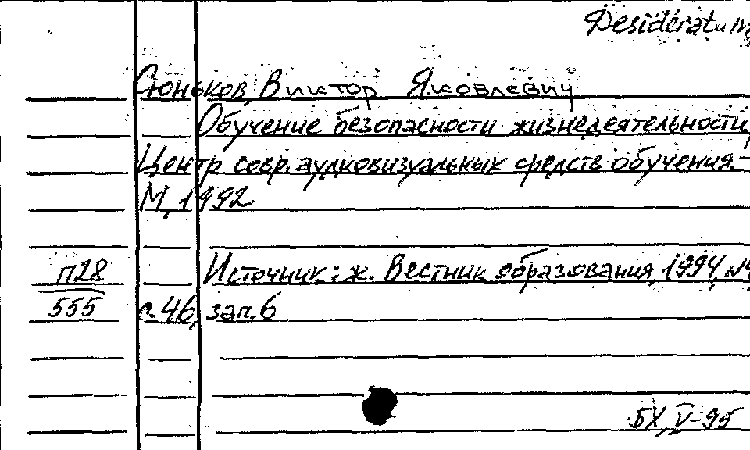 Desideratum
Сюньков, Виктор Яковлевич
Обучение безопасности жизнедеятельности,
Центр совр. аудиовизуальных средств обучения.-
М, 1992
п28 Источник: ж. Вестник образования, 1994, №
555 с.46, зап.6
БХ, V-95